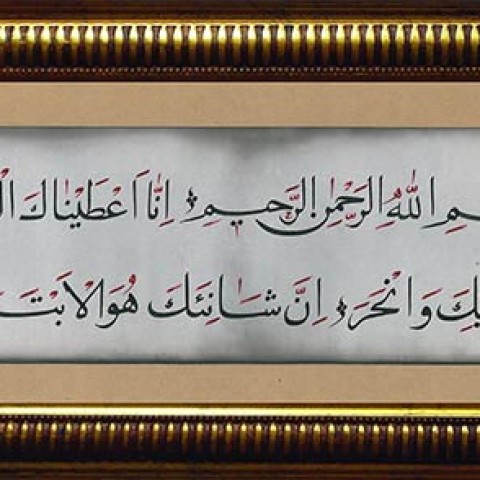 ـم اللهِ الرَّحْمٰنِ الرَّحيمِ اِنَّا اَعْطَيْنَاكَ الْـ
ـِّكَ وَانْحَرْ اِنَّ شَانِئَكَ هُوَ الْاَبْتَـ